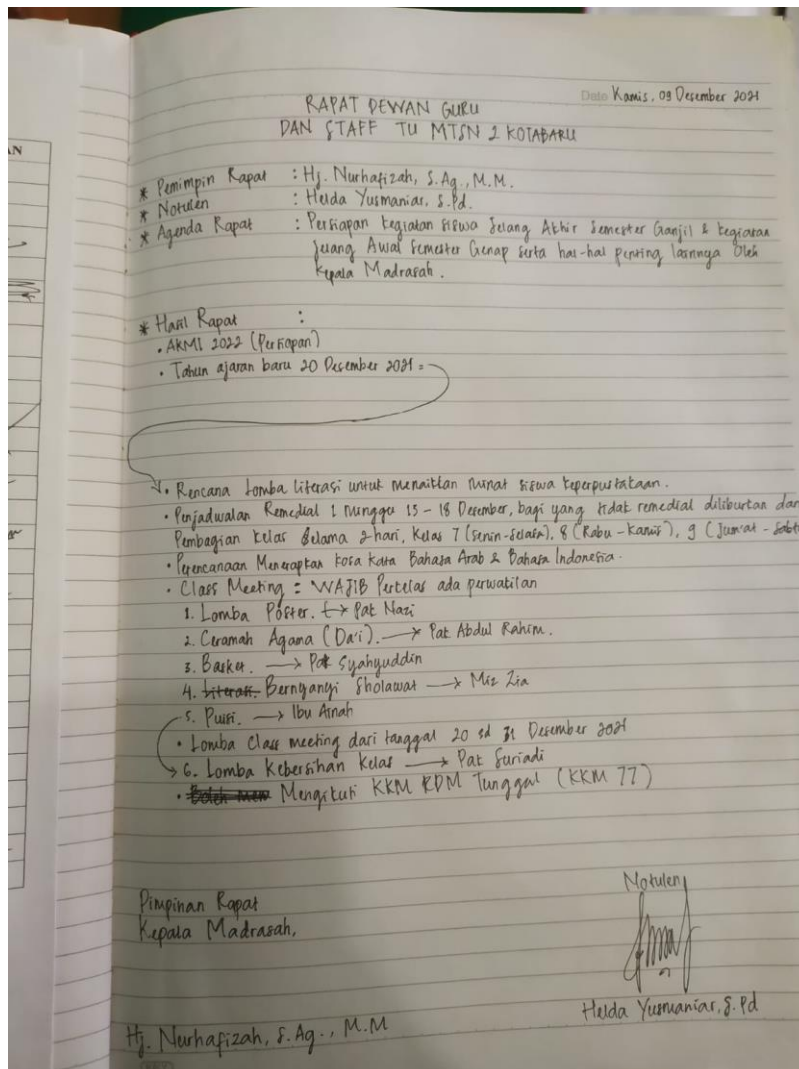 Date Kamis, 09 Desember 2021
RAPAT DEWAN GURU
DAN STAFF TU MTSN 2 KOTABARU
* Pemimpin Rapat : Hj. Nurhafizah, S.Ag., M.M.
* Notulen : Helda Yusmaniar, S.Pd.
* Agenda Rapat : Persiapan kegiatan siswa Jelang Akhir Semester Ganjil & kegiatan
Jelang Awal Semester Genap serta hal-hal penting lainnya Oleh
Kepala Madrasah.
* Hasil Rapat :
• AKMI 2022 (Persiapan)
• Tahun ajaran baru 20 Desember 2021 =
• Rencana Lomba literasi untuk menaikkan minat siswa keperpustakaan.
• Penjadwalan Remedial 1 Minggu 13 - 18 Desember, bagi yang tidak remedial diliburkan dan
Pembagian kelas selama 2 hari, Kelas 7 (senin-selasa), 8 (Rabu - Kamis), 9 (Jum'at - Sabtu
• Perencanaan Menerapkan kosa kata Bahasa Arab & Bahasa Indonesia.
• Class Meeting = WAJIB Perkelas ada perwakilan
1. Lomba Poster. → Pak Nazi
2. Ceramah Agama (Da'i). → Pak Abdul Rahim.
3. Basket. → Pak Syahyuddin
4. Literasi Bernyanyi Sholawat → Miz Zia
5. Puisi. → Ibu Ainah
• Lomba Class meeting dari tanggal 20 sd 31 Desember 2021
6. Lomba Kebersihan Kelas → Pak Suriadi
• Boleh men Mengikuti KKM RDM Tunggal (KKM 77)
Pimpinan Rapat
Kepala Madrasah,
Notulen,
Helda Yusmaniar, S.Pd
Hj. Nurhafizah, S.Ag., M.M